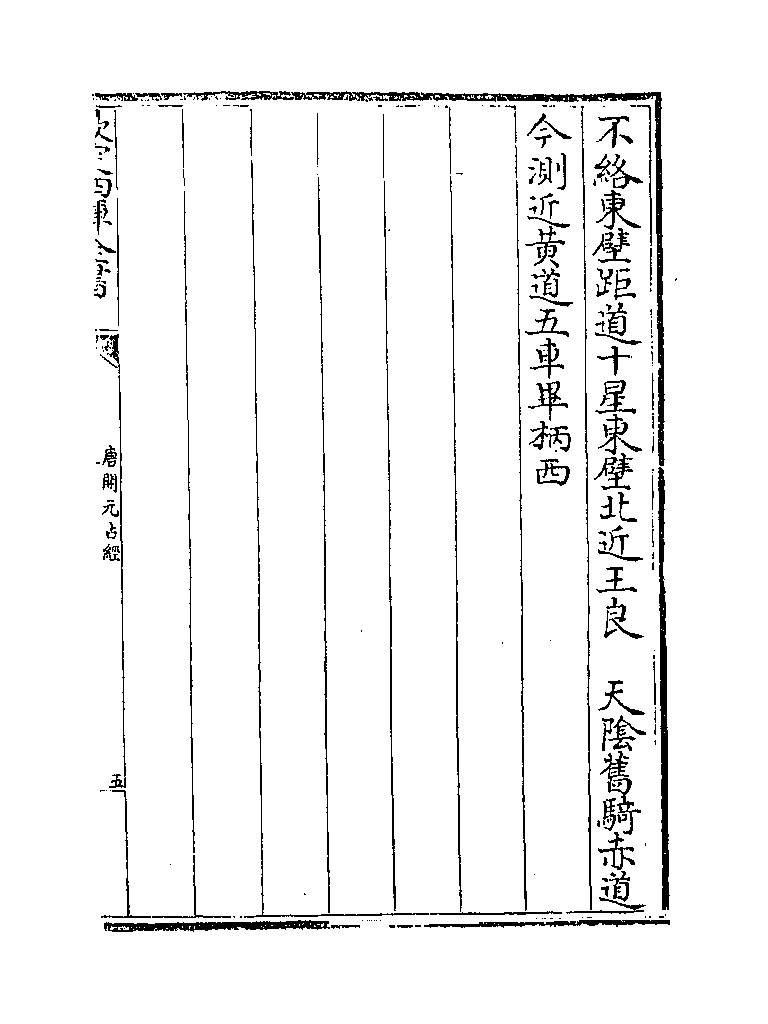 不絡東壁距道十星東壁北近王良　天陰舊騎赤道
今測近黄道五車畢柄西
欽定四庫全書
唐開元占經
五